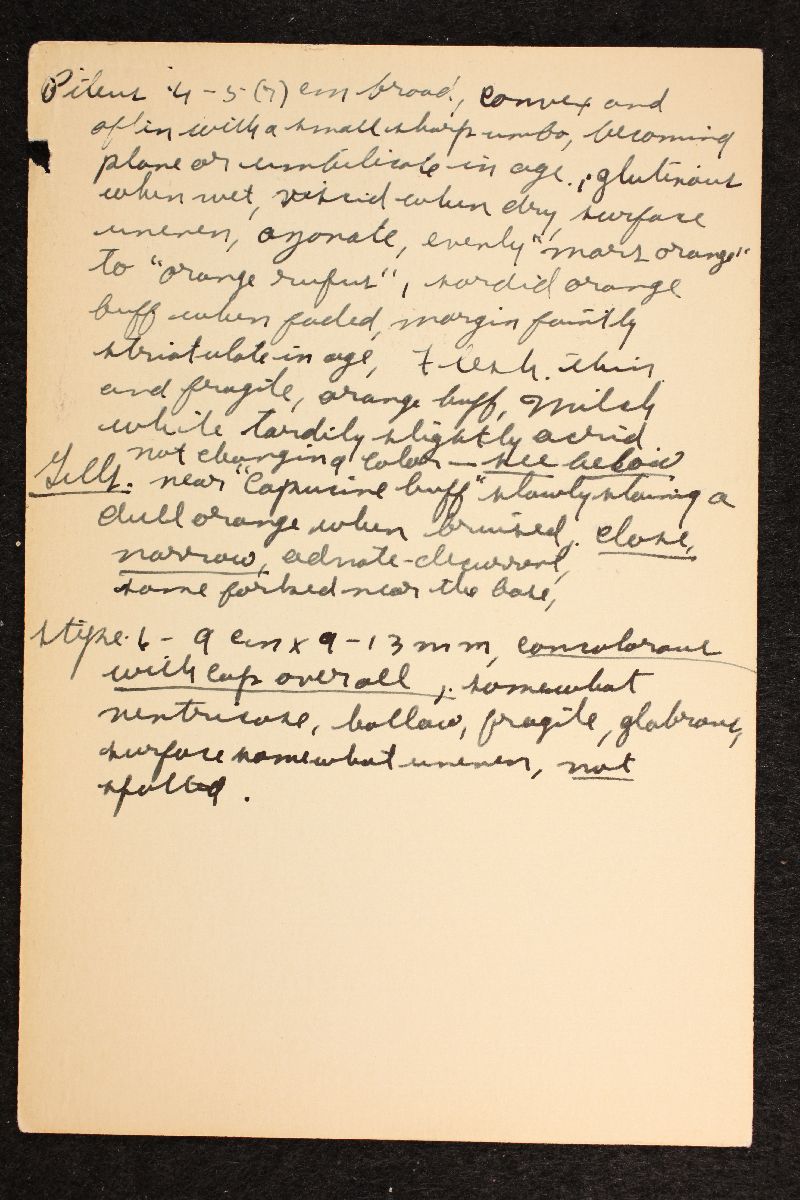 Pileus 4-5 (7) cm broad, convex and
often with a small sharp umbo, becoming
plane or umbilicate in age.; glutinous
when wet, viscid when dry, surface
uneven, azonate, evenly "mars orange"
to "orange rufus", sordid orange
buff when faded, margin faintly
striatulate in age, Flesh. thin
and fragile, orange buff, milch
white tardily slightly acrid
not changing color — see below
Gills. near "Capucine buff" slowly staining a
dull orange when bruised. close,
narrow, adnate-decurrent,
some forked near the base,
Stipe. 6-9 cm x 9-13 mm, concolorous
with cap overall,; somewhat
ventricose, hollow, fragile, glabrous,
surface somewhat uneven, not
spotted.